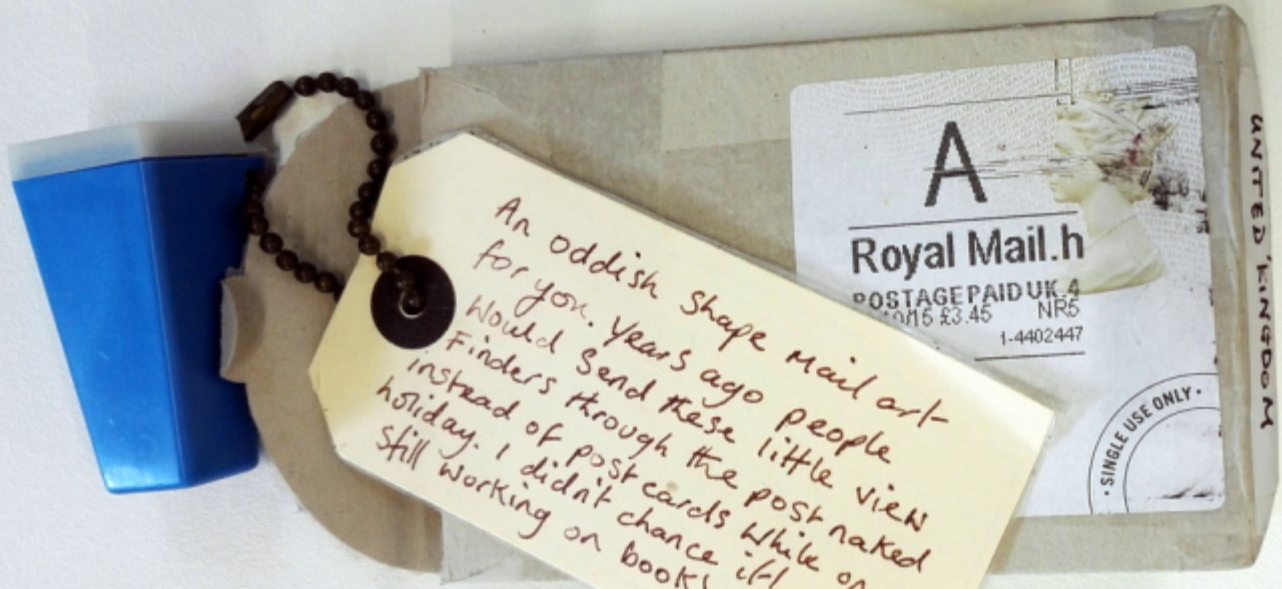 An oddish shape mail art
for you. Years ago people
would send these little view
Finders through the post naked
instead of post cards while on
holiday. I didn't chance it!
Still working on book!
A
Royal Mail.h
POSTAGE PAID UK 4
£3.45 NR5
1-4402447
• SINGLE USE ONLY •
UNITED KINGDOM